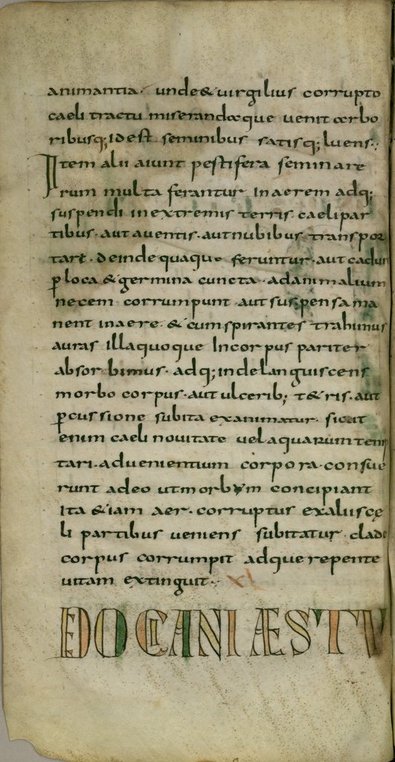 animantia· unde & virgilius corrupto
caeli tractu miserandaque venit arbo
ribusq; idest seminibus satisq; luens·,
Item alii aiunt pestifera seminare
rum multa ferantur in aerem adq;
suspendi in extremis terris caeli par
tibus· aut aventis· aut nubibus transpor
tare· deinde quaque feruntur· aut cadun
p loca & germina cuncta· ad animalium
necem corrumpunt· aut suspensa ma
nent in aere· & cum spirantes trahimus
auras illa quoque in corpus pariter
absorbimus· adq; inde languiscens
morbo corpus· aut ulcerib; t&ris· aut
pcussione subita exanimatur· sicut
enim caeli novitate vel aquarum tem
tari· advenientium corpora· consue
runt adeo ut morbum concipiant
ita &iam aer· corruptus ex aliis cę
li partibus veniens subitatur clade
corpus corrumpit adque repente
vitam extinguit· XL
DE OCEANI ÆSTU